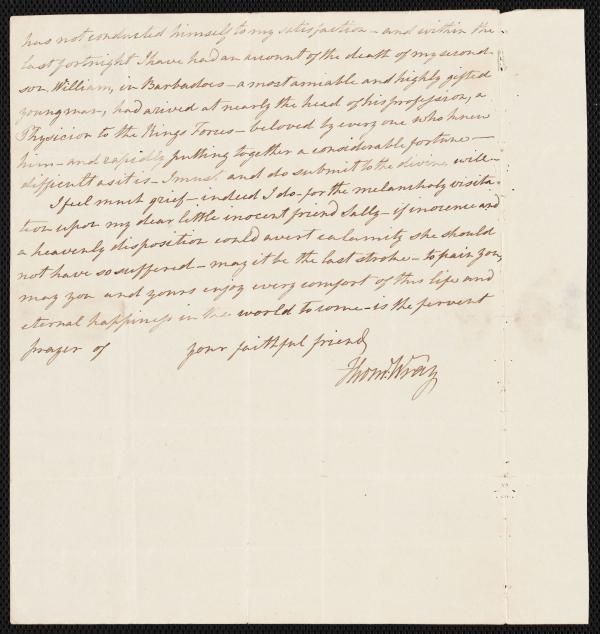 has not conducted himself to my satisfaction – and within the
last fortnight I have had an account of the death of my second
son, William, in Barbadoes – a most amiable and highly gifted
young man, had arived at nearly the head of his profession, a
Physician to the Kings Forces – beloved by every one who knew
him – and rapidly putting together a considerable fortune –
difficult as it is – I must and do submit to the divine will –
I feel much grief – indeed I do – for the melancholy visita
tion upon my dear little inocent friend Sally – if inocence and
a heavenly disposition could avert calamity she should
not have so suffered – may it be the last stroke – to pain you,
may you and yours enjoy every comfort of this life and
eternal happiness in the world to come – is the fervent
prayer of your faithful friend
Thom. Wray